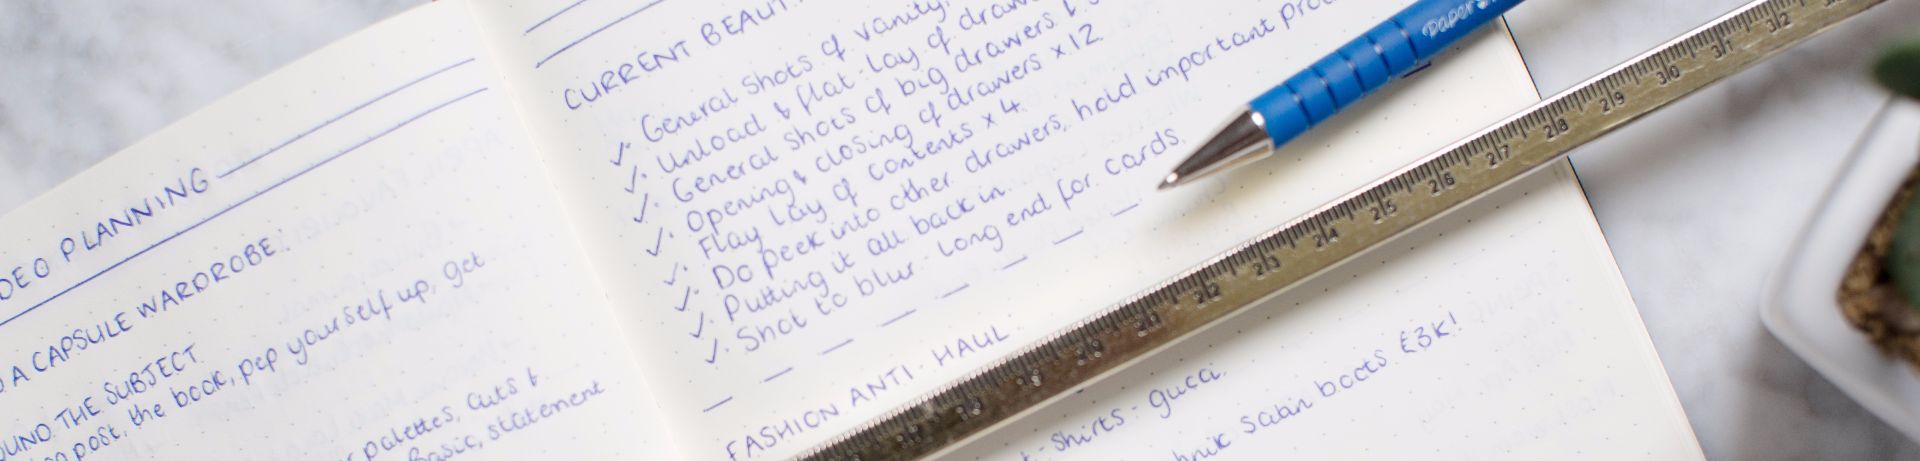 DEO PLANNING
A CAPSULE WARDROBE:
OUND THE SUBJECT
post, the book, pep yourself up, get
palettes, cuts &
Basic, statement
CURRENT BEAUT
✓. General shots of vanity,
✓. Unload & flat-lay of draw
✓. General shots of big drawers &
✓. Opening & closing of drawers x 12
✓. Flay lay of contents x 4
✓. Do peek into other drawers, hold important prod
✓. Putting it all back in.
✓. Shot to blur - long end for cards.
FASHION ANTI-HAUL
t-shirts - gucci.
hnik Satin boots £3K!
Paper
18
19
21
22
23
24
25
26
27
28
29
30
31
32